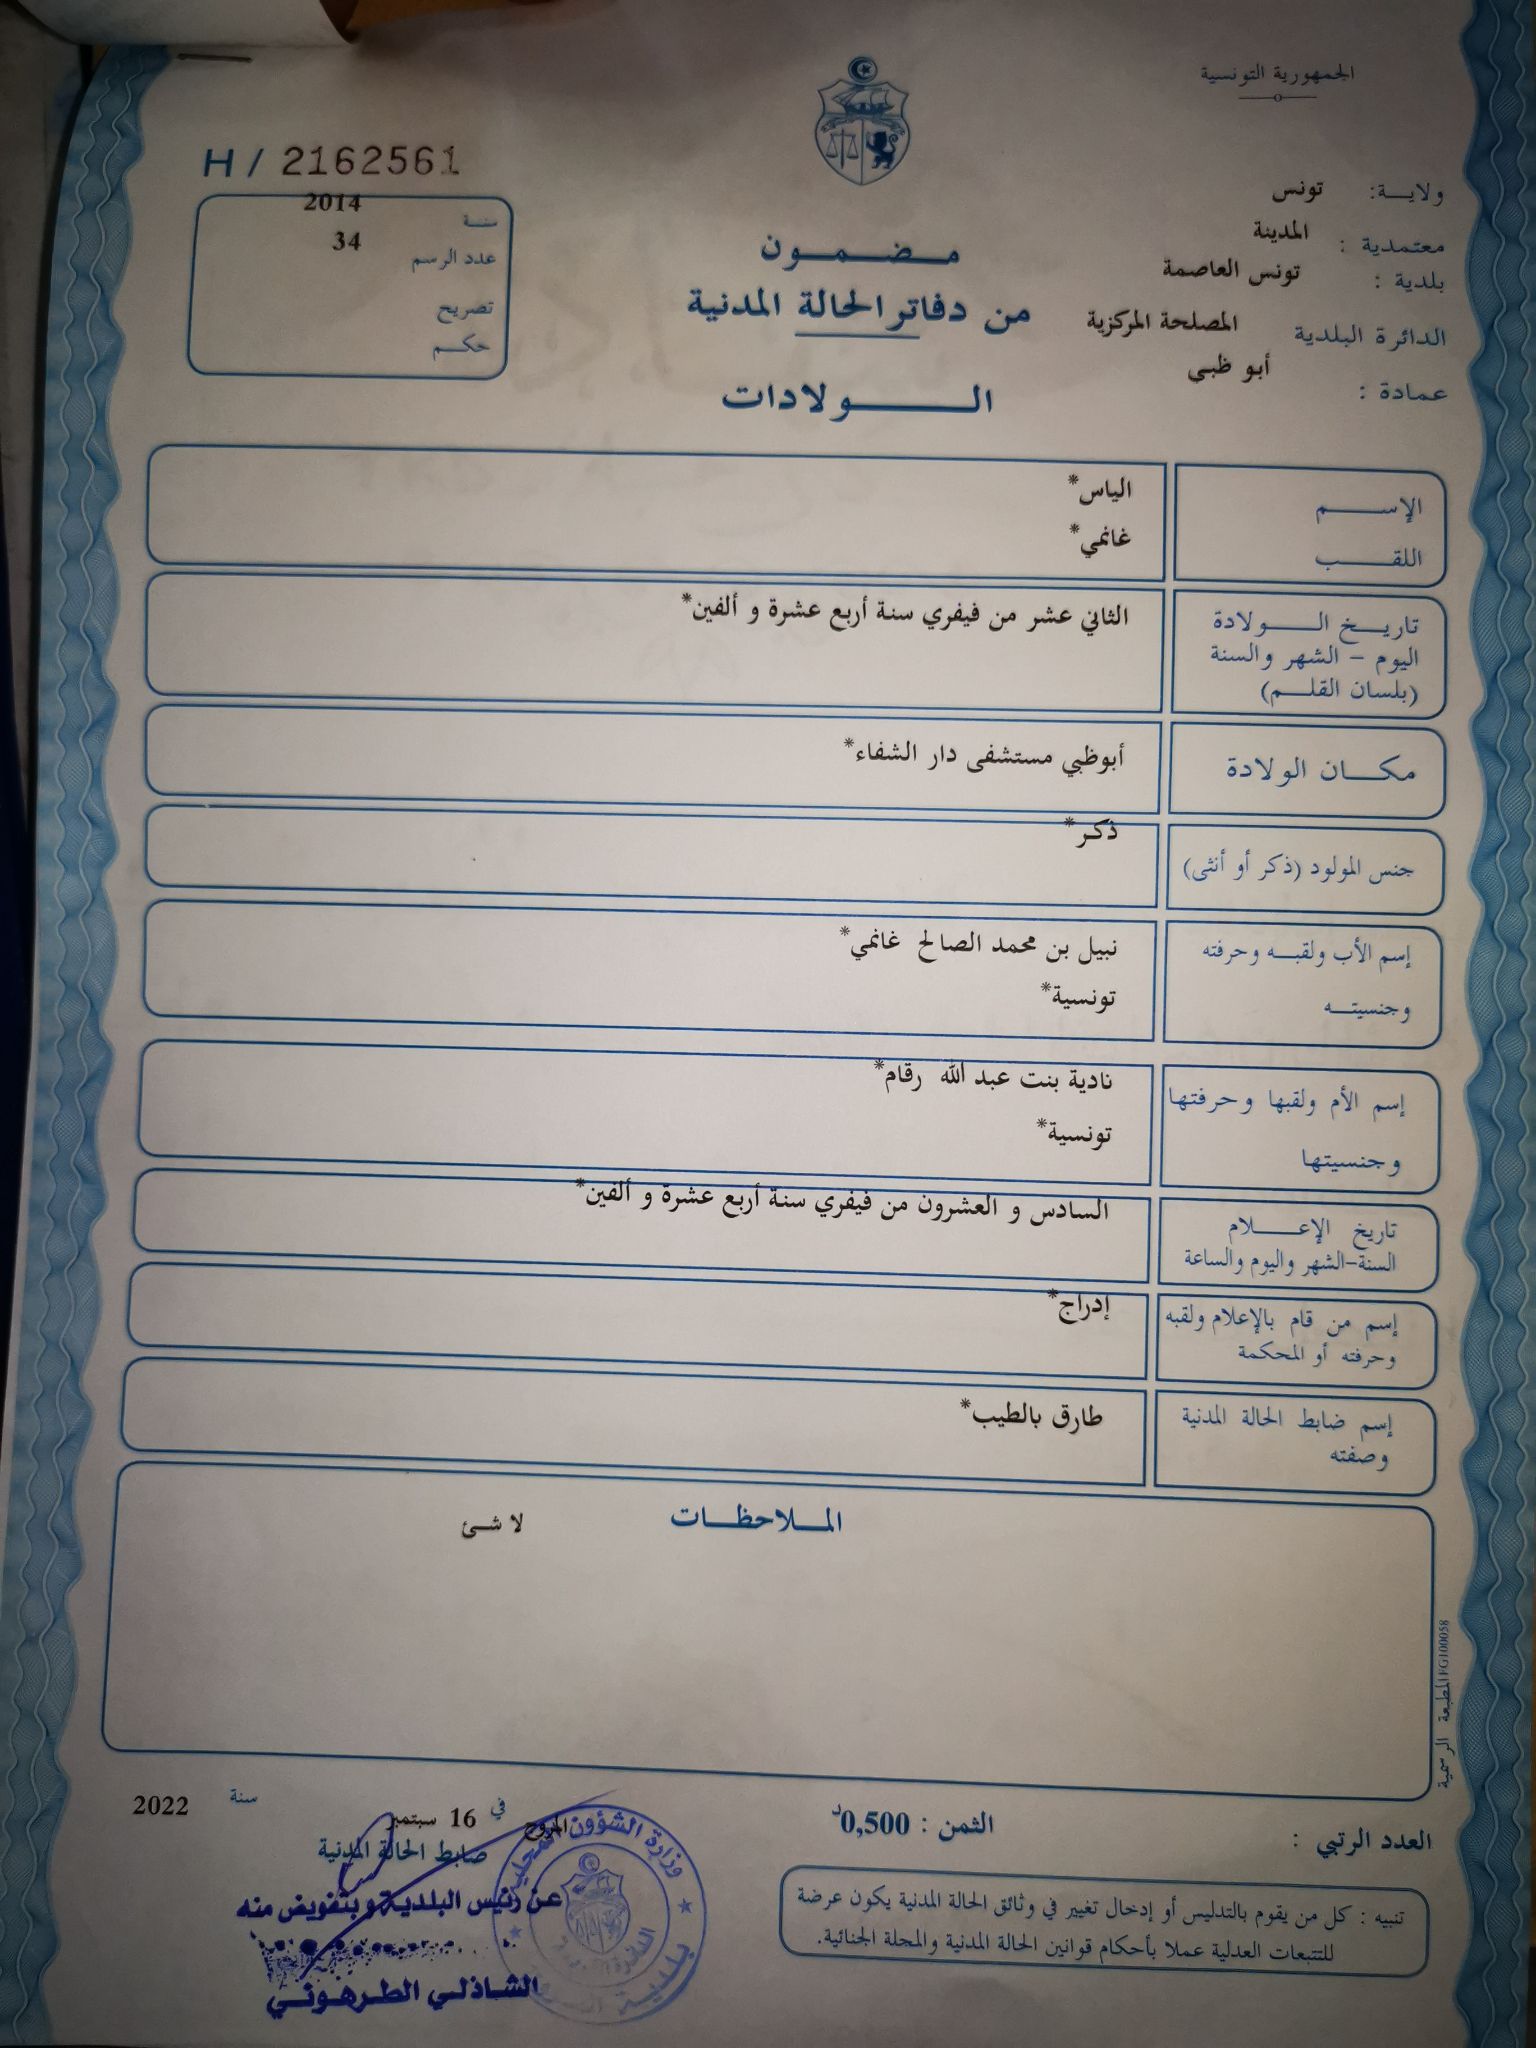 الجمهورية التونسية
H / 2162561
ولاية: تونس
معتمدية : المدينة
بلدية : تونس العاصمة
الدائرة البلدية المصلحة المركزية
عمادة : أبو ظبي
سنة 2014
عدد الرسم 34
تصريح
حكم
مضمون
من دفاتر الحالة المدنية
الولادات
الإسم الياس*
اللقب غانمي*
تاريخ الولادة
اليوم - الشهر والسنة
(بلسان القلم)
الثاني عشر من فيفري سنة أربع عشرة و ألفين*
مكان الولادة أبوظبي مستشفى دار الشفاء*
جنس المولود (ذكر أو أنثى) ذكر*
إسم الأب ولقبه وحرفته نبيل بن محمد الصالح غانمي*
وجنسيته تونسية*
إسم الأم ولقبها وحرفتها نادية بنت عبد الله رقام*
وجنسيتها تونسية*
تاريخ الإعلام
السنة-الشهر واليوم والساعة
السادس و العشرون من فيفري سنة أربع عشرة و ألفين*
إسم من قام بالإعلام ولقبه
وحرفته أو المحكمة
إدراج*
إسم ضابط الحالة المدنية
وصفته
طارق بالطيب*
الملاحظات لا شئ
المطبعة الرسمية FG100058
العدد الرتبي :
الثمن : 0,500د
المروج في 16 سبتمبر سنة 2022
ضابط الحالة المدنية
عن رئيس البلدية وبتفويض منه
الشاذلي الطرهوني
وزارة الشؤون المحلية
تنبيه : كل من يقوم بالتدليس أو إدخال تغيير في وثائق الحالة المدنية يكون عرضة
للتتبعات العدلية عملا بأحكام قوانين الحالة المدنية والمجلة الجنائية.